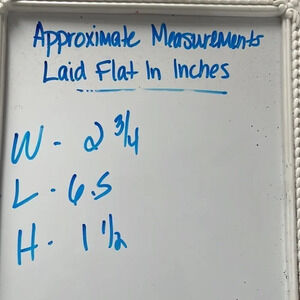 Approximate Measurements
Laid Flat In Inches
W - 2 3/4
L - 6.5
H - 1 1/2